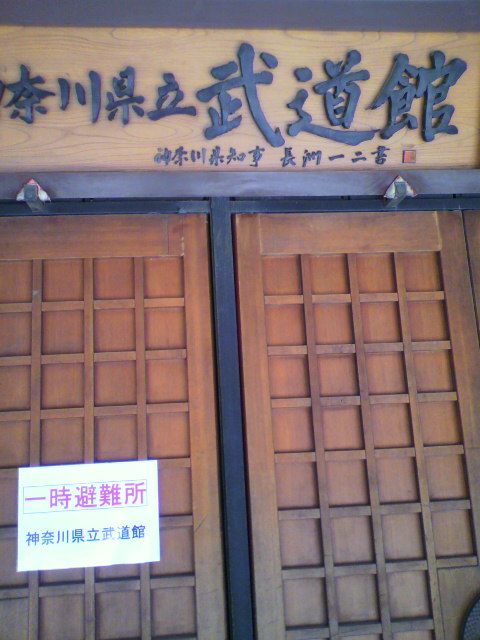 神奈川県立武道館
神奈川県知事 長洲一二書
一時避難所
神奈川県立武道館